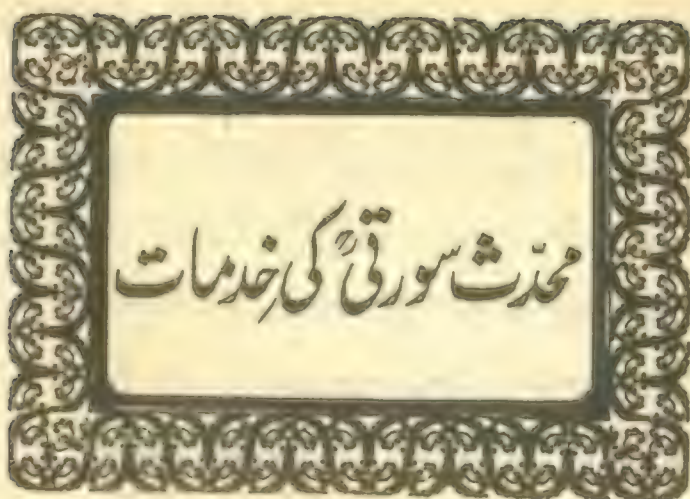 محدّث سورتیؒ کی خِدمات